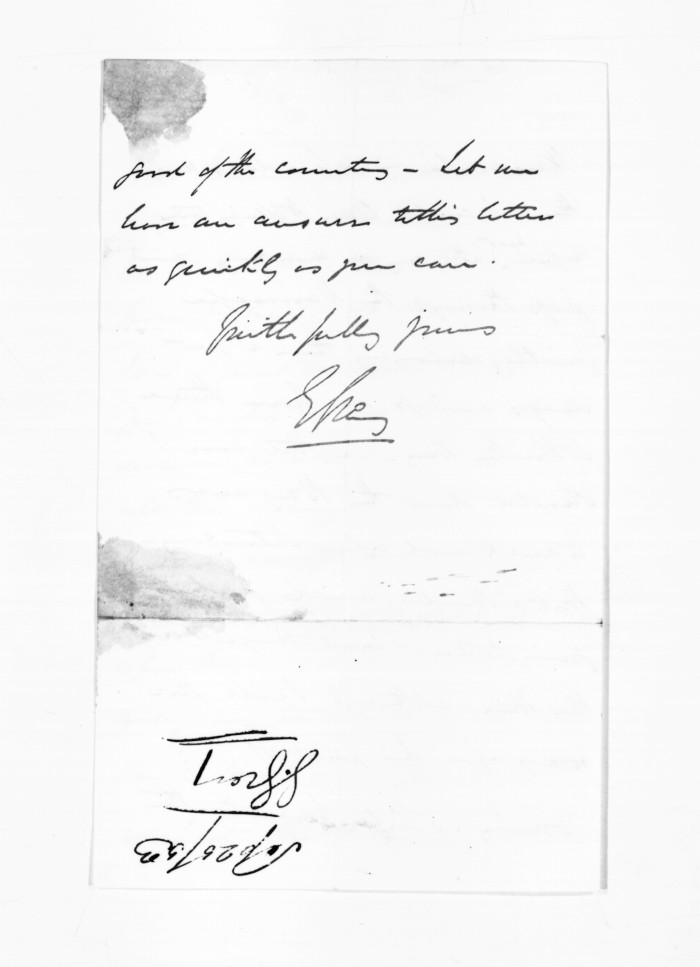 good of the country – Let me
have an answer to this letter
as quickly as you can.
Faithfully yours
GGrey
Sep 25/53